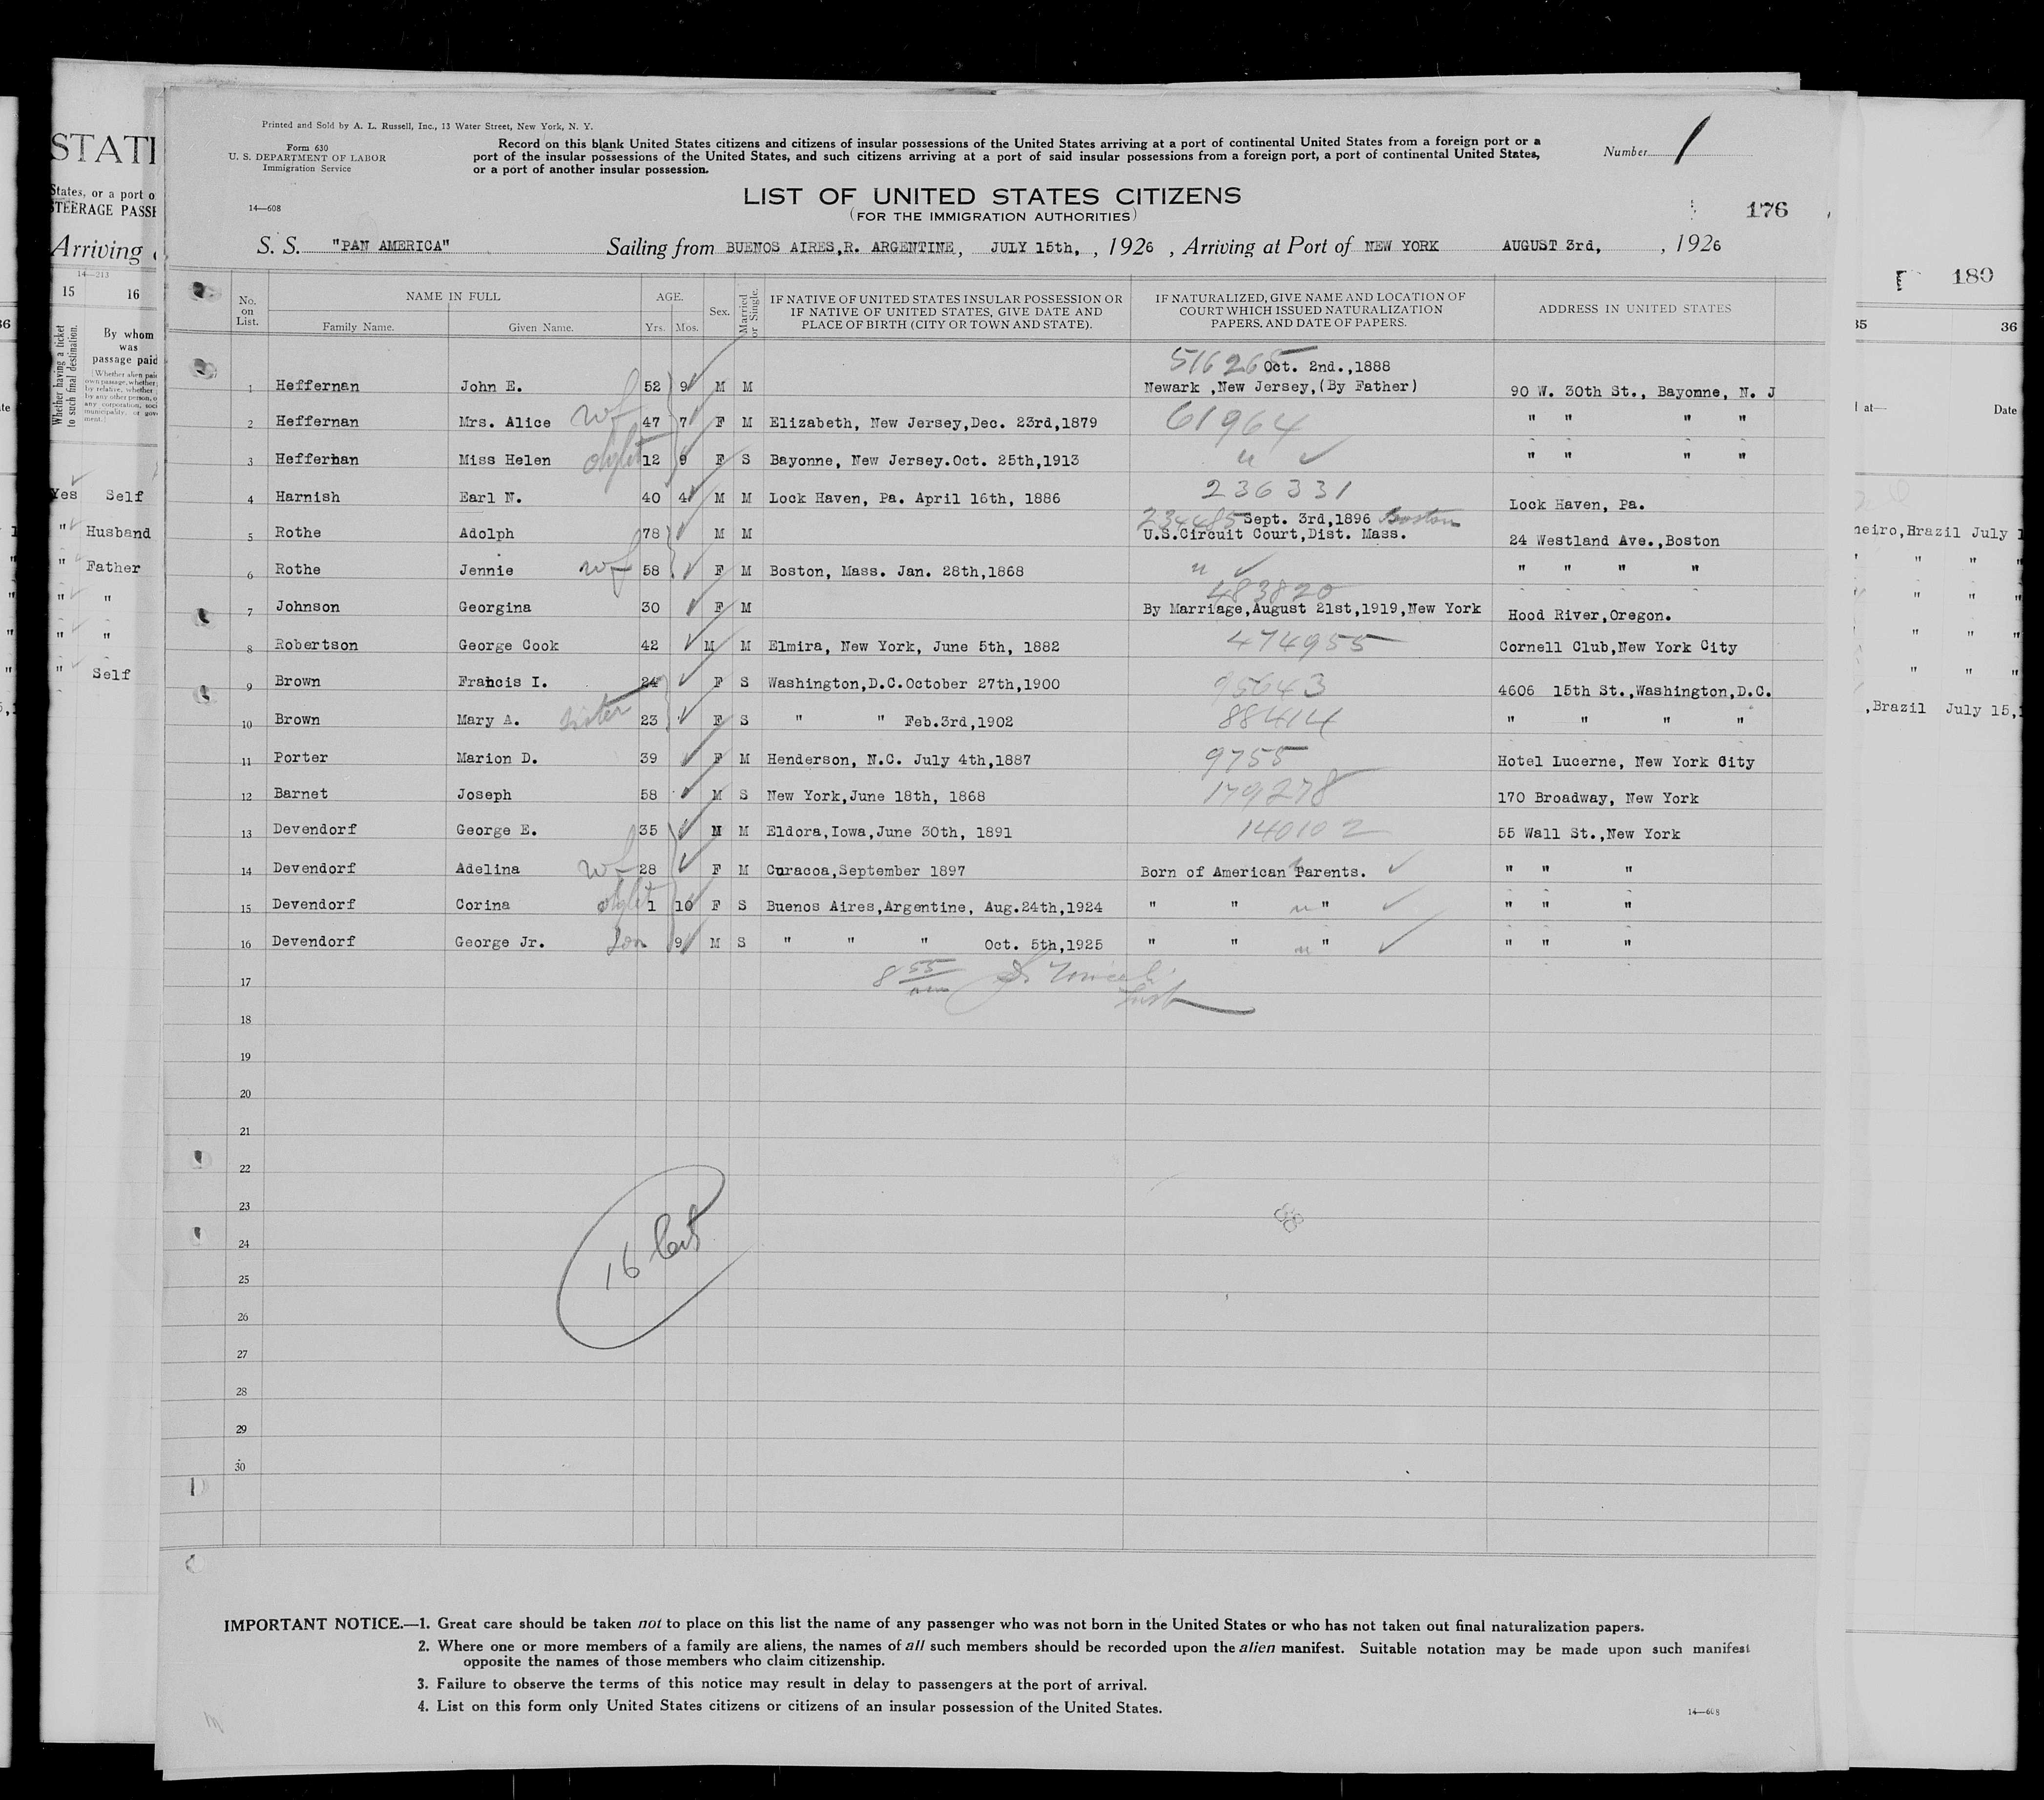 Printed and Sold by A. L. Russell, Inc., 13 Water Street, New York, N. Y.
Form 630
U. S. DEPARTMENT OF LABOR
Immigration Service
14—608
Record on this blank United States citizens and citizens of insular possessions of the United States arriving at a port of continental United States from a foreign port or a
port of the insular possessions of the United States, and such citizens arriving at a port of said insular possessions from a foreign port, a port of continental United States,
or a port of another insular possession.
Number 1
LIST OF UNITED STATES CITIZENS
(FOR THE IMMIGRATION AUTHORITIES)
176
S. S. "PAN AMERICA" Sailing from BUENOS AIRES,R. ARGENTINE, JULY 15th, , 1926 , Arriving at Port of NEW YORK AUGUST 3rd, , 1926
No. on List. NAME IN FULL Family Name. Given Name. AGE. Yrs. Mos. Sex. Married or Single. IF NATIVE OF UNITED STATES INSULAR POSSESSION OR IF NATIVE OF UNITED STATES, GIVE DATE AND PLACE OF BIRTH (CITY OR TOWN AND STATE). IF NATURALIZED, GIVE NAME AND LOCATION OF COURT WHICH ISSUED NATURALIZATION PAPERS, AND DATE OF PAPERS. ADDRESS IN UNITED STATES
516265 Oct. 2nd.,1888
1 Heffernan John E. 52 9 M M Newark ,New Jersey,(By Father) 90 W. 30th St., Bayonne, N. J
2 Heffernan Mrs. Alice wf 47 7 F M Elizabeth, New Jersey,Dec. 23rd,1879 61964 " " " "
3 Heffernan Miss Helen 12 9 F S Bayonne, New Jersey.Oct. 25th,1913 " " " " "
4 Harnish Earl N. 40 4 M M Lock Haven, Pa. April 16th, 1886 236331 Lock Haven, Pa.
234485 Sept. 3rd,1896 Boston
5 Rothe Adolph 78 M M U.S.Circuit Court,Dist. Mass. 24 Westland Ave.,Boston
6 Rothe Jennie wf 58 F M Boston, Mass. Jan. 28th,1868 " " " " "
483820
7 Johnson Georgina 30 F M By Marriage,August 21st,1919,New York Hood River,Oregon.
8 Robertson George Cook 42 M M Elmira, New York, June 5th, 1882 474955 Cornell Club,New York City
9 Brown Francis I. 24 F S Washington,D.C.October 27th,1900 95643 4606 15th St.,Washington,D.C.
10 Brown Mary A. sister 23 F S " " Feb.3rd,1902 88414 " " " "
11 Porter Marion D. 39 F M Henderson, N.C. July 4th,1887 9755 Hotel Lucerne, New York City
12 Barnet Joseph 58 M S New York,June 18th, 1868 179278 170 Broadway, New York
13 Devendorf George E. 35 M M Eldora,Iowa,June 30th, 1891 140102 55 Wall St.,New York
14 Devendorf Adelina wf 28 F M Curacoa,September 1897 Born of American Parents. " " "
15 Devendorf Corina 1 10 F S Buenos Aires,Argentine, Aug.24th,1924 " " " " " "
16 Devendorf George Jr. Son 9 M S " " " Oct. 5th,1925 " " " " " "
17 8 55
18
19
20
21
22
23
24
25
26
27
28
29
30
16
IMPORTANT NOTICE.—1. Great care should be taken not to place on this list the name of any passenger who was not born in the United States or who has not taken out final naturalization papers.
2. Where one or more members of a family are aliens, the names of all such members should be recorded upon the alien manifest. Suitable notation may be made upon such manifest
opposite the names of those members who claim citizenship.
3. Failure to observe the terms of this notice may result in delay to passengers at the port of arrival.
4. List on this form only United States citizens or citizens of an insular possession of the United States.
14—608
STATE
States, or a port o
STEERAGE PASSE
Arriving
14—213
15 16
Whether having a ticket to such final destination.
By whom
was
passage paid
Yes Self
" Husband
" Father
" "
" "
" Self
180
35 36
at— Date
neiro,Brazil July 1
" " "
" " "
" " "
" " "
,Brazil July 15,